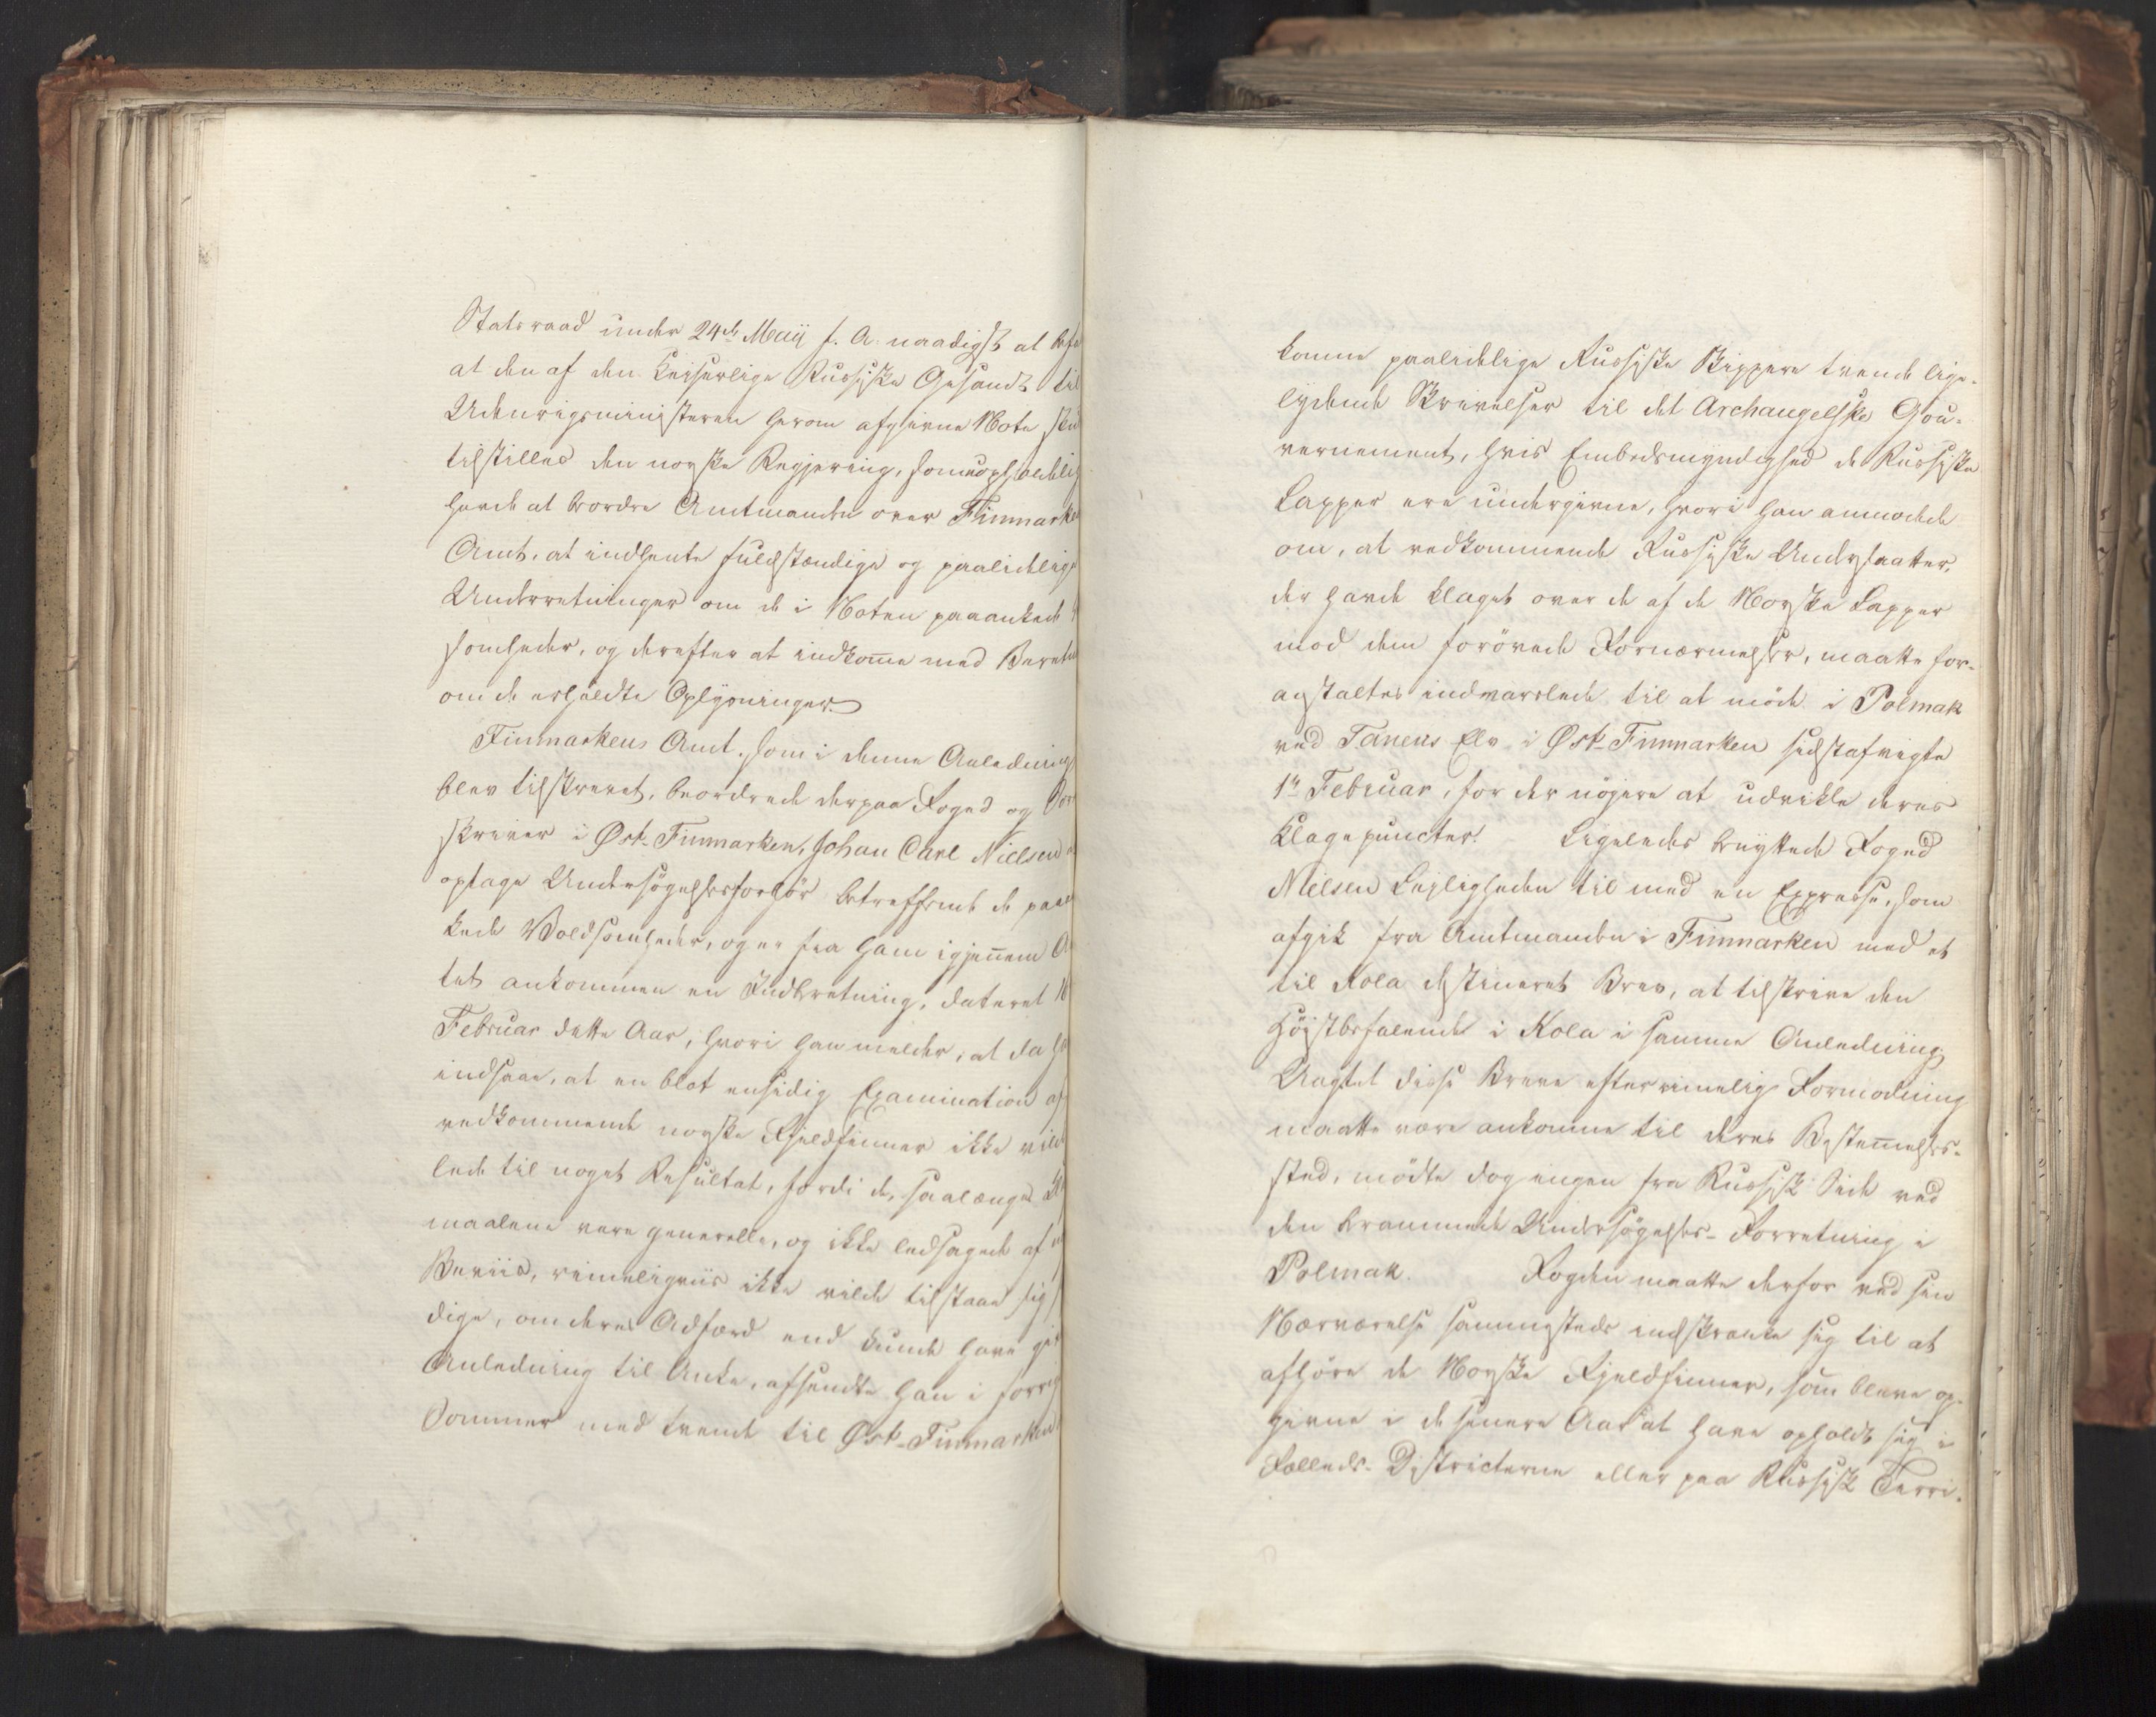 Statsraad under 24de Maij f. A. naadigst at befa
at den af den Keiserlige Russiske Gesandt til
Udenrigsministeren herom afgivne Note sku
tilstilles den norske Regjering, som
havde at beordre Amtmanden over Finmarke
Amt, at indhente fuldstændige og paalidelige
Underretninger om de i Noten paaankede
somheder, og derefter at indkom̅e med Beretn
om de erholdte Oplysninger.
Finmarkens Amt, som i denne Anledning
blev tilskrevet, beordrede derpaa Foged og Sor
skriver i Øst-Finmarken, Johan Carl Nielsen
optage Undersøgelsesforhör betreffende de paaa
kede Voldsomheder, og er fra ham igjen̅em A
tet ankommen en Indberetning, dateret 16
Februar dette Aar, hvori han melder, at da h
indsaae, at en blot ensidig Examination af
vedkommende norske Fjeldfinner ikke vild
lede til noget Resultat, fordi de, saalænge Kl
maalene vare generelle, og ikke ledsagede af
Beviis, rimeligviis ikke vilde tilstaae sig
dige, om deres Adfærd end kunde have giv
Anledning til Anke, afsendte han i forrig
Sommer med trende til Øst-Finmarken
komne paalidelige Russiske Skippere trende lige-
lydende Skrivelser til det Archangelske Gou-
vernement, hvis Embedsmyndighed de Russiske
Lapper ere undergivne, hvori han anmodede
om, at vedkommende Russiske Undersaatter,
der havde klaget over de af de Norske Lapper
mod dem forövede Fornærmelser, maatte for-
anstaltes indvarslede til at möde i Polmak
ved Tanens Elv i Øst-Finmarken sidstafvigte
1ste Februar, for der nöjere at udvikle deres
Klagepuncter. Ligeledes benyttede Foged
Nielsen Lejligheden til med en Expresse, som
afgik fra Amtmanden i Finmarken med et
til Kola destineret Brev, at tilskrive den
Höjstbefalende i Kola i samme Anledning
Uagtet disse Breve efter rimelig Formodning
maatte være ankomne til deres Bestem̅elses-
sted, mödte dog ingen fra Russisk Side ved
den berammede Undersøgelses-Forretning i
Polmak. Fogden maatte derfor ved sin
Nærværelse sammesteds indskrænke sig til at
afhöre de Norske Fjeldfinner, som bleve op-
givne i de senere Aar at have opholdt sig i
Fælleds-Districterne eller paa Russisk Terri-